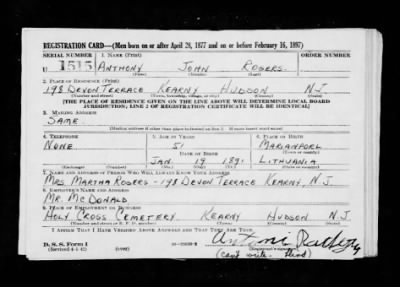 REGISTRATION CARD—(Men born on or after April 28, 1877 and on or before February 16, 1897)
SERIAL NUMBER 1. NAME (Print)
U 1515 ANTHONY JOHN ROGERS
(First) (Middle) (Last)
2. PLACE OF RESIDENCE (Print)
198 DEVON TERRACE KEARNY HUDSON N.J.
(Number and street) (Town, township, village, or city) (County) (State)
[THE PLACE OF RESIDENCE GIVEN ON THE LINE ABOVE WILL DETERMINE LOCAL BOARD
JURISDICTION; LINE 2 OF REGISTRATION CERTIFICATE WILL BE IDENTICAL]
3. MAILING ADDRESS
SAME
[Mailing address if other than place indicated on line 2. If same insert word same]
4. TELEPHONE 5. AGE IN YEARS 6. PLACE OF BIRTH
NONE 51
DATE OF BIRTH
JAN 19 1891 LITHUANIA
(Exchange) (Number) (Mo.) (Day) (Yr.) (State or country)
7. NAME AND ADDRESS OF PERSON WHO WILL ALWAYS KNOW YOUR ADDRESS
MRS. MARTHA ROGERS - 198 DEVON TERRACE KEARNY, N.J.
8. EMPLOYER'S NAME AND ADDRESS
MR. McDONALD
9. PLACE OF EMPLOYMENT OR BUSINESS
HOLY CROSS CEMETERY KEARNY HUDSON N.J.
(Number and street or R. F. D. number) (Town) (County) (State)
I AFFIRM THAT I HAVE VERIFIED ABOVE ANSWERS AND THAT THEY ARE TRUE.
D. S. S. Form 1
(Revised 4-1-42) (over)
(can't write.